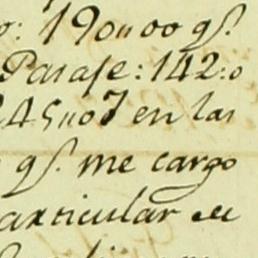 o: 190,,00 qs.
Parage: 142:0
245,,07 en las
qs. me cargo
articular